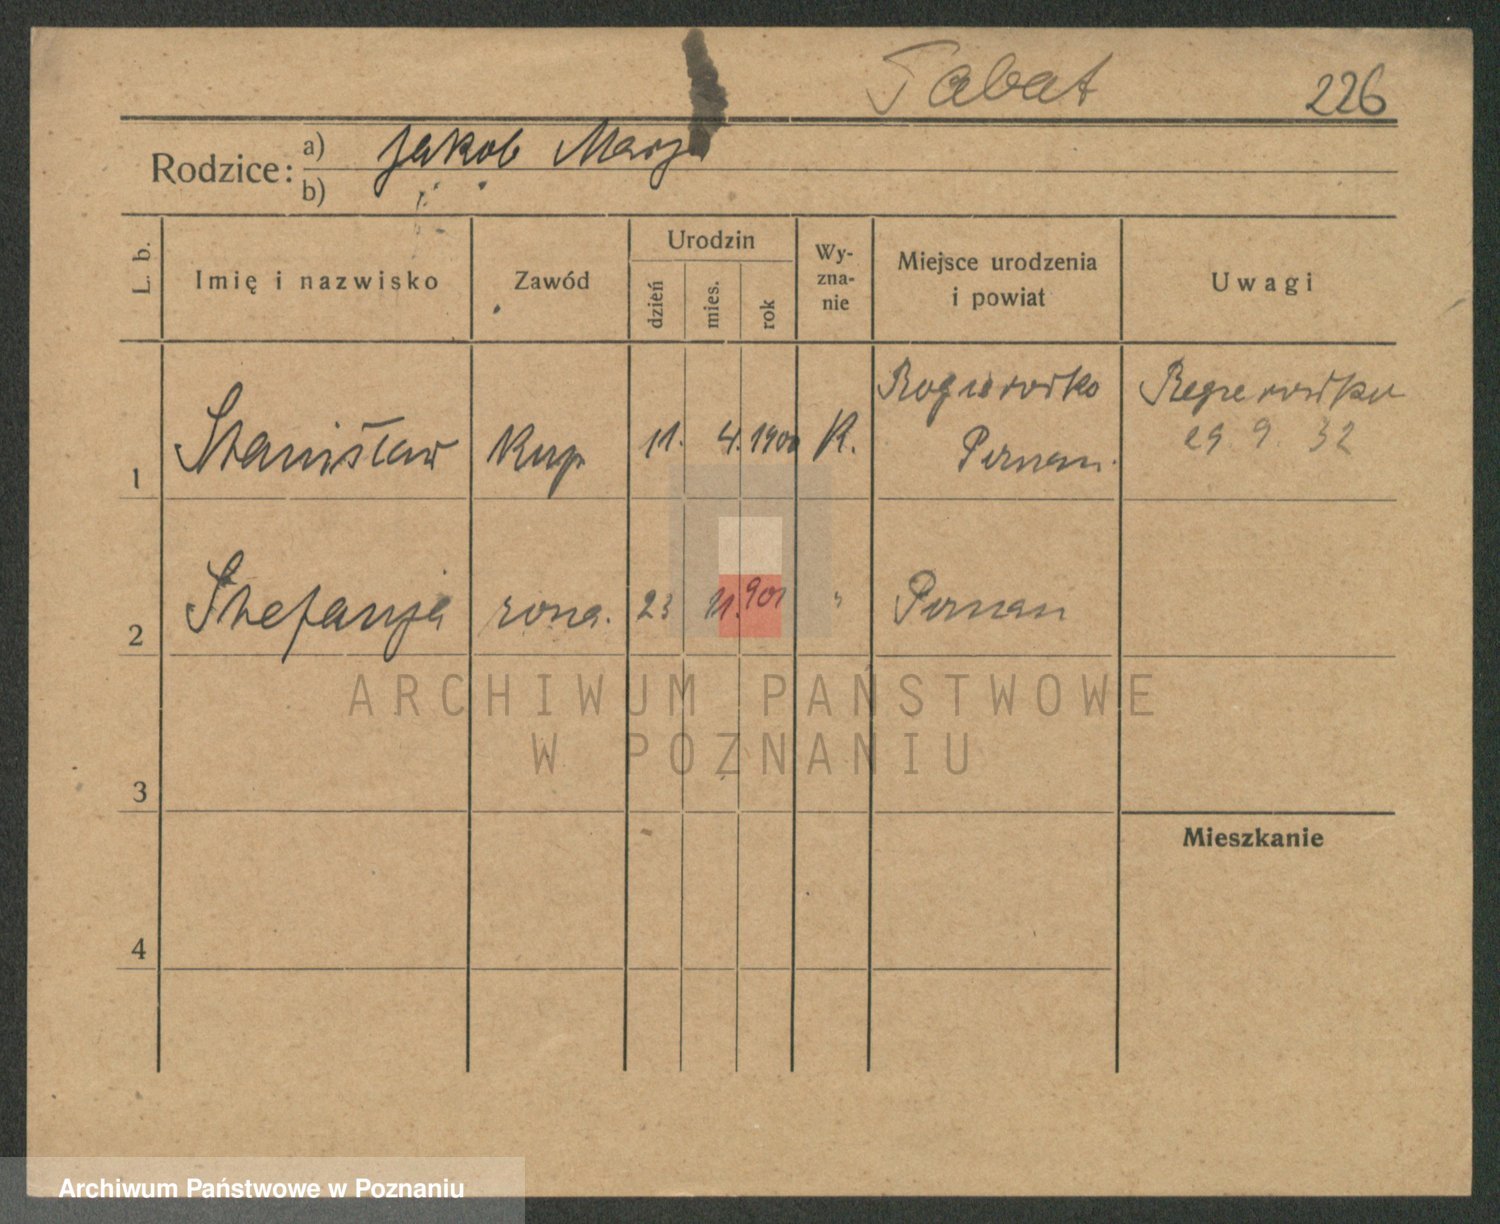 Tabat 226
Rodzice: a) Jakob Marja
b)
L. b. Imię i nazwisko Zawód Urodzin dzień mies. rok Wy-zna-nie Miejsce urodzenia i powiat Uwagi
1 Stanisław Kup 11. 4. 1900 K. Poznan. 29. 9. 32
2 Stefanja zona. 23 11. 901 " Poznan
ARCHIWUM PAŃSTWOWE
W POZNANIU
3
Mieszkanie
4
Archiwum Państwowe w Poznaniu